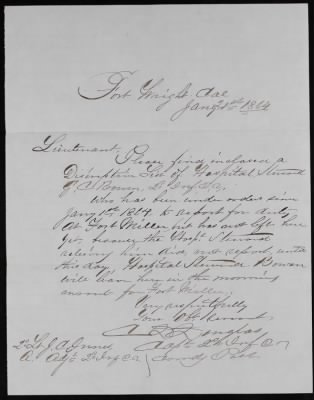 Fort Wright Cal
Jany 1864
Lieutenant, Please find inclosed a
Descriptive List of Hospital Steward
Bowen 2d Inf C.V.
Who has been under orders since
Jany 1st 1864 to report for duty
at Fort Miller but has not left here
yet, because the Hosp. Steward
relieving him did not report until
this day, Hospital Steward Bowen
will leave here in the morning
en route for Fort Miller.
Very respectfully
Your Obt Servant
Douglas
Adjt 2d Inf C.V.
Comdg Post
2d Lt J. A.
A. Adjt 2d Inf C.V.